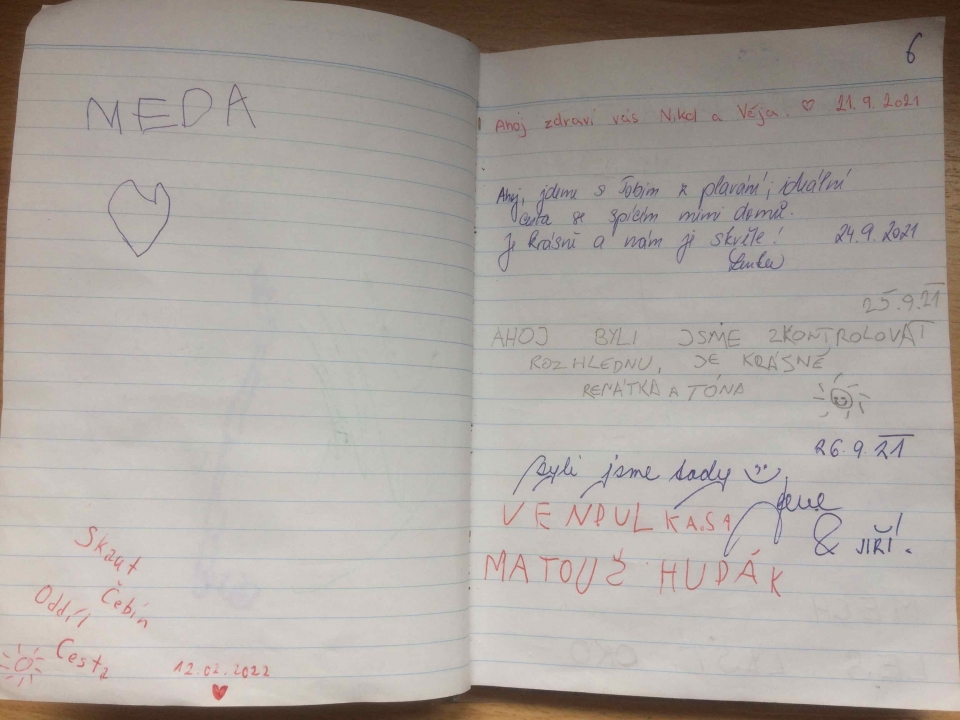 MEDA
Skaut
Čebín
Oddíl
Cesta
12.02.2022
6
Ahoj zdraví vás Nikol a Věja. 21.9.2021
Ahoj, jdeme s Tobim z plavání, ideální
cesta se spícím mimi domů.
Je krásně a nám je skvěle! 24.9.2021
Lenka
25.9.21
AHOJ BYLI JSME ZKONTROLOVAT
ROZHLEDNU, JE KRÁSNĚ
RENÁTKA A TÓNA
26.9.21
Byli jsme tady
VENDULKA.SA
& JIŘÍ.
MATOUŠ HUDÁK